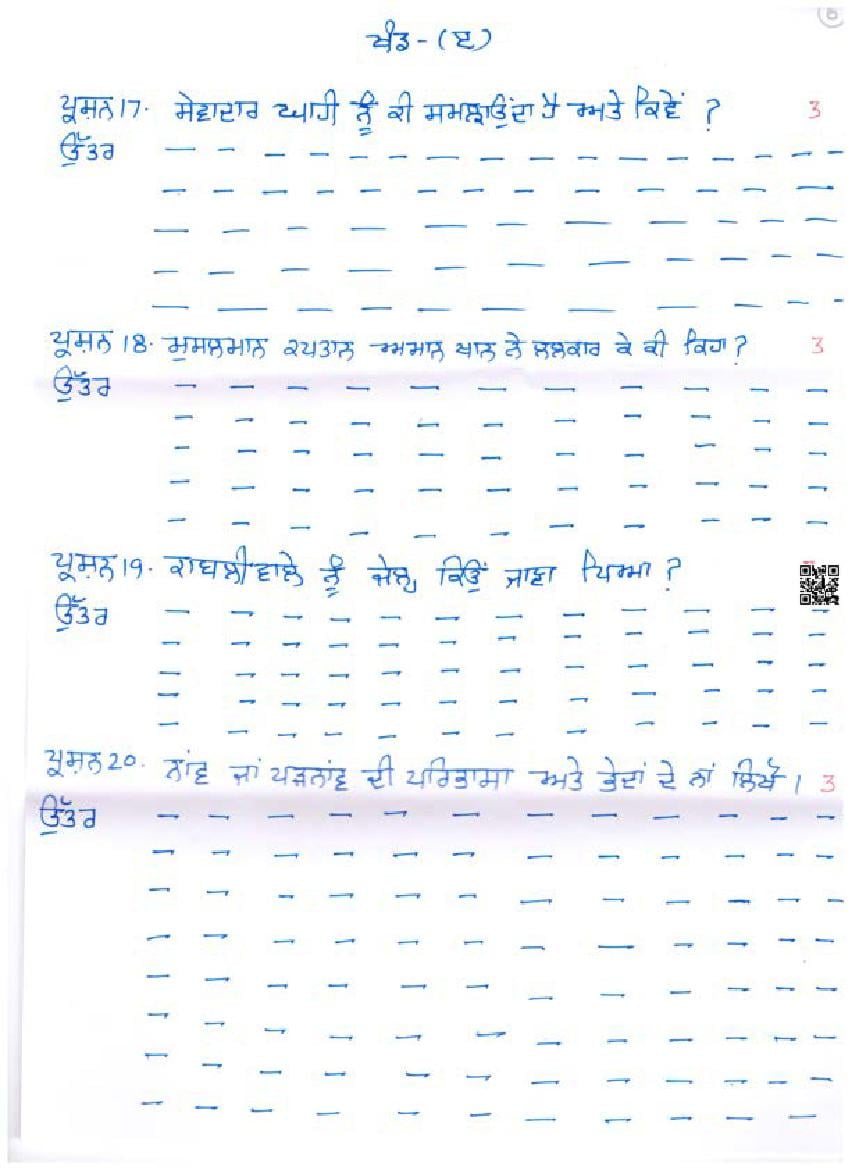 ਖੰਡ - (ੲ)
ਪ੍ਰਸ਼ਨ 17. ਸੇਵਾਦਾਰ ਆਹੀ ਨੂੰ ਕੀ ਸਮਝਾਉਂਦਾ ਹੈ ਅਤੇ ਕਿਵੇਂ ? 3
ਉੱਤਰ
ਪ੍ਰਸ਼ਨ 18. ਮੁਸਲਮਾਨ ਕਪਤਾਨ ਅਮਾਨ ਖਾਨ ਨੇ ਲਲਕਾਰ ਕੇ ਕੀ ਕਿਹਾ ? 3
ਉੱਤਰ
ਪ੍ਰਸ਼ਨ 19. ਕਾਬਲੀਵਾਲੇ ਨੂੰ ਜੇਲ੍ਹ ਕਿਉਂ ਜਾਣਾ ਪਿਆ ?
ਉੱਤਰ
ਪ੍ਰਸ਼ਨ 20. ਨਾਂਵ ਜਾਂ ਪੜਨਾਂਵ ਦੀ ਪਰਿਭਾਸਾ ਅਤੇ ਭੇਦਾਂ ਦੇ ਨਾਂ ਲਿਖੋ। 3
ਉੱਤਰ